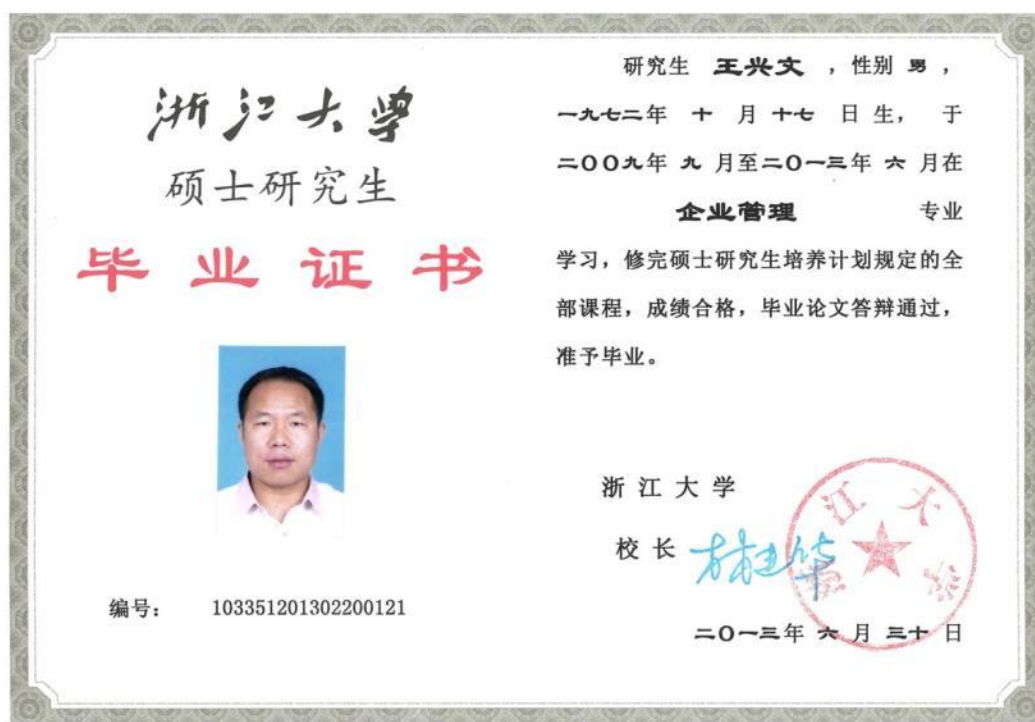 浙江大学
硕士研究生
毕业证书
编号: 103351201302200121
研究生 王兴文 ,性别 男,
一九七二年 十 月 十七 日 生, 于
二〇〇九年 九 月至二〇一三年 六 月在
企业管理 专业
学习,修完硕士研究生培养计划规定的全
部课程,成绩合格,毕业论文答辩通过,
准予毕业。
浙江大学
校长 林建华
浙江大学
二〇一三年 六 月 三十 日